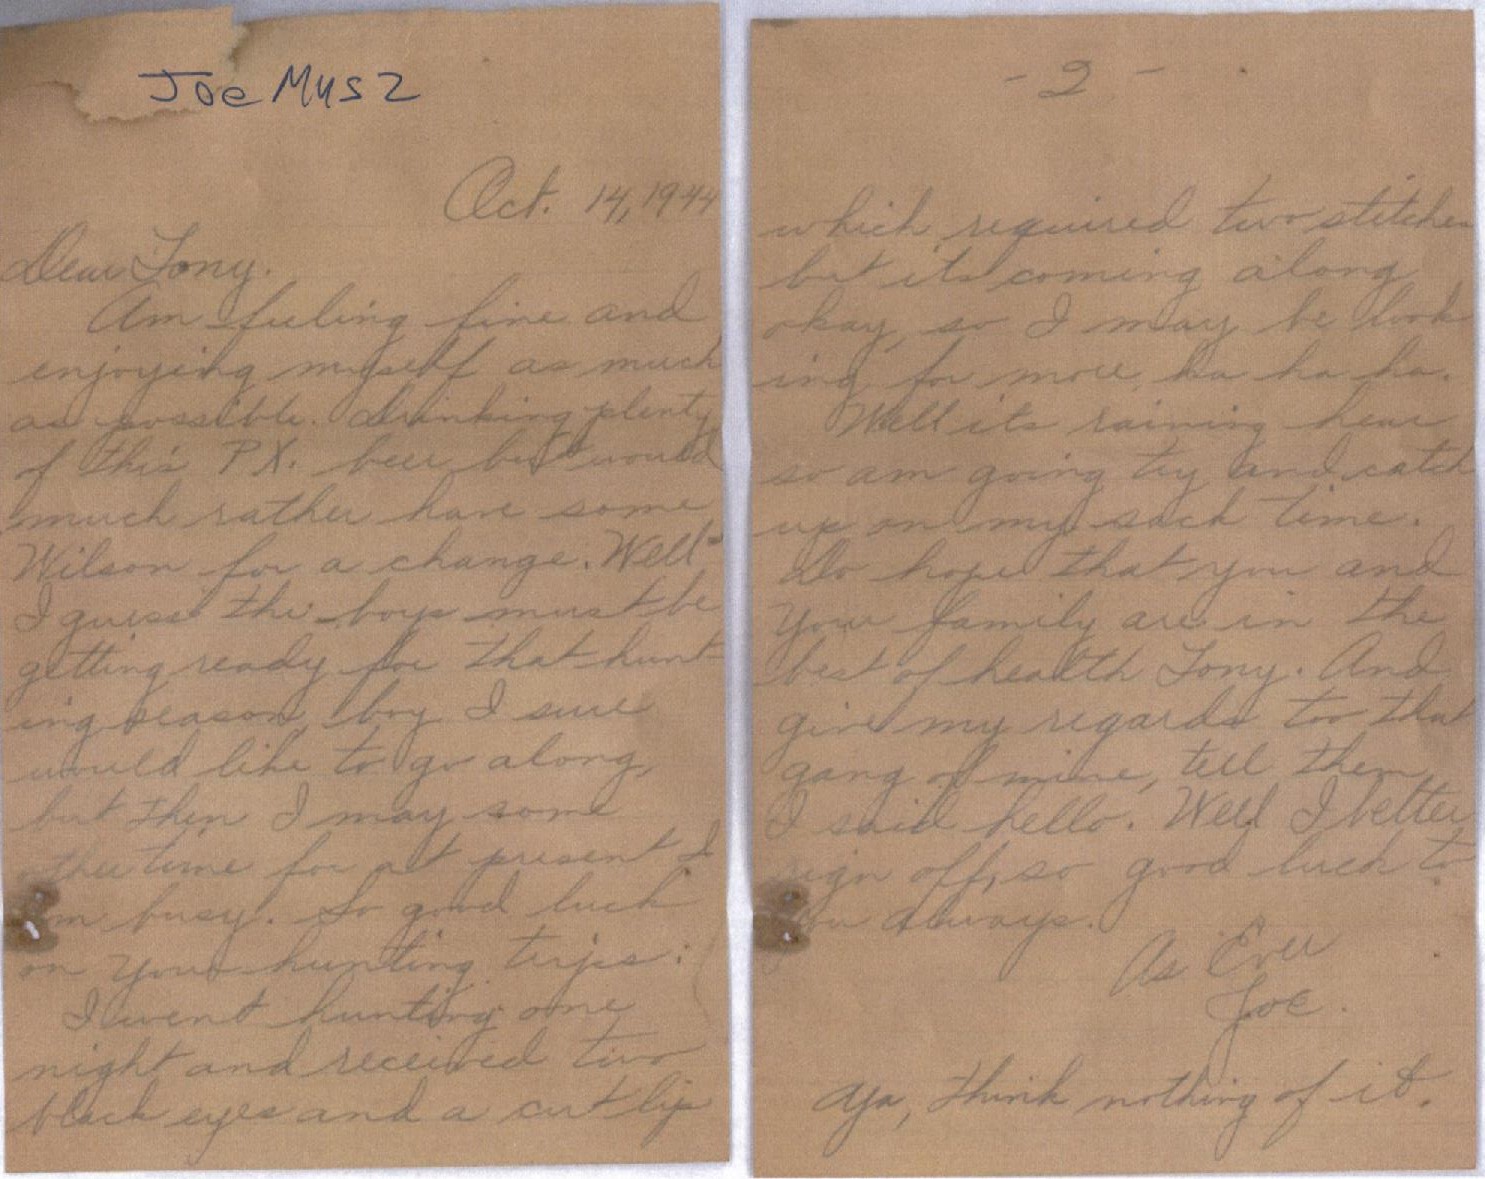 Joe Musz
Oct. 14, 1944
Dear Tony.
Am feeling fine and
enjoying myself as much
as possible. Drinking plenty
of this P.X. beer but would
much rather have some
Wilson for a change. Well
I guess the boys must be
getting ready for that hunt-
ing season, boy I sure
would like to go along,
but then I may some
other time for at present I
am busy. So good luck
on your hunting trips.
I went hunting one
night and received two
black eyes and a cut lip
- 2 -
which required two stitches
but its coming along
okay, so I may be look
ing for more, ha ha ha.
Well its raining hear
so am going try and catch
up on my sack time.
Do hope that you and
your family are in the
best of health Tony. And
give my regards too that
gang of mine, tell them
I said hello. Well I better
sign off, so good luck to
you always.
As Ever
Joe.
Aya, think nothing of it.